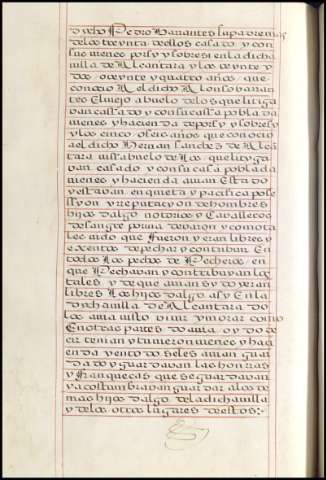 dicho Pedro Barrantes su padre mas
de los treynta dellos casado y con
su muger por sy y sobre sy en la dicha
villa de Alcantara y los veynte y
dos o veynte y quatro años que
conocio Al dicho Alonso barran
tes El viejo abuelo de los que litiga
van cassado y con su casa poblada
vienes y hacienda de por sy y sobre sy
y los cinco o seis años que conocio
a el dicho Hernan sanchez de Alcan
tara visabuelo de los que lityga
van casado y con su casa poblada
vienes y hacienda avian Estado
y estavan en quieta y pacifica pose
ssyon y reputacyon de hombres
hijos dalgo notorios y Cavalleros
de sangre por via de varon y como ta
les avido que fueron y eran libres y
exentos de pechar y contribuir En
todos los pechos de Pecheros en
que Pechavan y contribuyan los
tales y de que avian sydo y eran
libres Los hijos dalgo asy En la
dicha villa de Alcantara do
los avia visto vivir y morar como
En otras partes do avia oydo de
cir tenian y tuvieron vienes y haci
enda y en todo se les avian guar
dado y guardavan las honrras
y franquezas que se guardavan
y acostumbravan guardar a los de
mas hijos dalgo de la dicha villa
y de los otros lugares destos:-